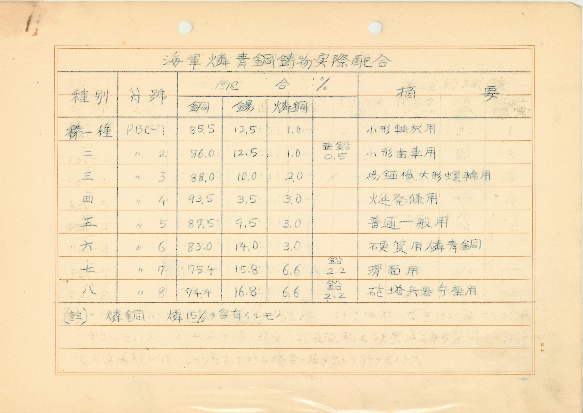 海軍燐青銅鋳物実際配合
種別 符號 配合% 摘要
銅 錫 燐銅
第一種 PBC-1 85.5 13.5 1.0 小形軸承用
二 〃 2 86.0 12.5 1.0 亜鉛 0.5 小形歯車用
三 〃 3 88.0 10.0 2.0 揚錨機大形螺輪用
四 〃 4 93.5 3.5 3.0 発條用
五 〃 5 87.5 9.5 3.0 普通一般用
六 〃 6 83.0 14.0 3.0 硬質用燐青銅
七 〃 7 75.4 15.8 6.6 鉛 2.2 滑面用
八 〃 8 74.4 16.8 6.6 鉛 2.2 砲塔兵器
(註) 燐銅ハ燐15%ヲ含有スルモノ